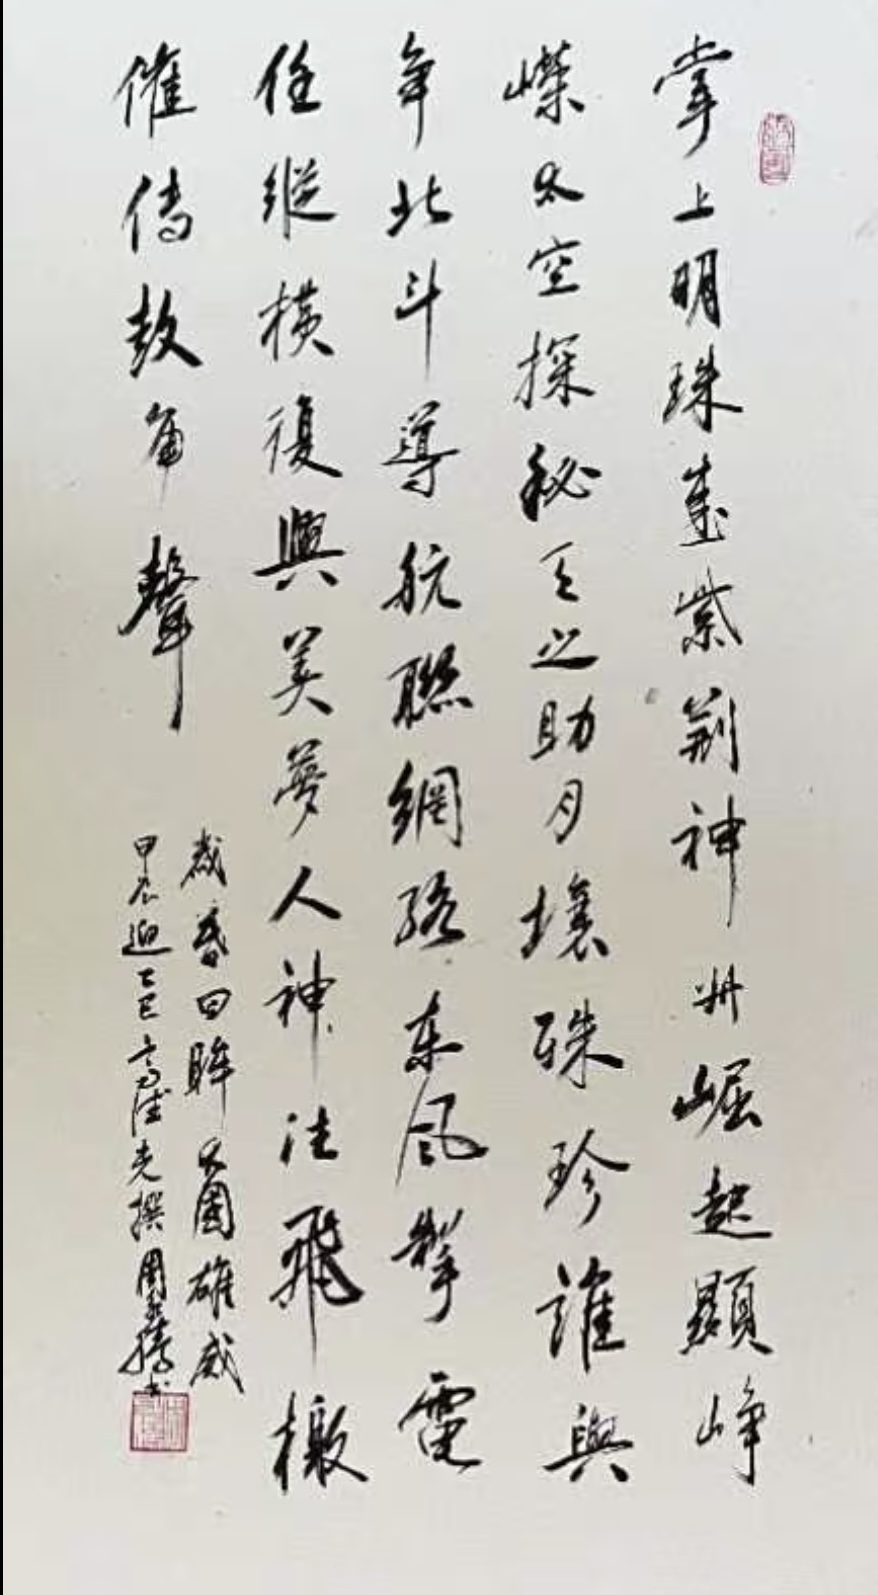 掌上明珠臺紫荊神州崛起顯崢
嶸太空探秘天之助月壤殊珍誰與
争北斗導航聯網絡东風掣電
任縱橫復興美夢人神往飛檄
催傳鼓角聲
歲暮回眸大國雄威
甲辰迎乙巳高陸光撰周騰书